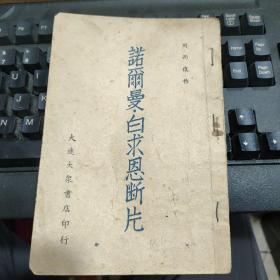 周而復作
諾爾曼·白求恩断片
大連大衆書店印行